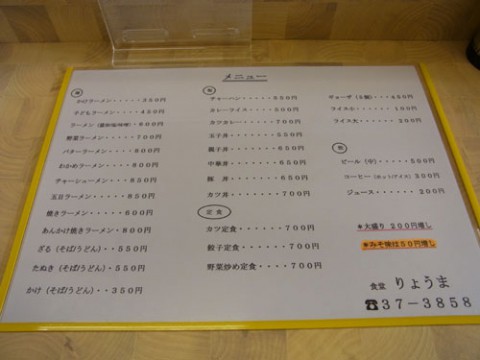 メニュー
かけラーメン・・・・・350円
子どもラーメン・・・・450円
ラーメン(醤油塩味噌)・600円
野菜ラーメン・・・・・700円
バターラーメン・・・・800円
わかめラーメン・・・・850円
チャーシューメン・・・850円
五目ラーメン・・・・・850円
焼きラーメン・・・・・600円
あんかけ焼きラーメン・800円
ざる(そば/うどん)・・550円
たぬき(そば/うどん)・550円
かけ(そば/うどん)・・350円
チャーハン・・・・・・550円
カレーライス・・・・・600円
カツカレー・・・・・・700円
玉子丼・・・・・・・・550円
親子丼・・・・・・・・650円
中華丼・・・・・・・・650円
豚 丼・・・・・・・・650円
カツ丼・・・・・・・・700円
定食
カツ定食・・・・・・・700円
餃子定食・・・・・・・700円
野菜炒め定食・・・・・700円
ギョーザ・・・450円
ライス小・・・・・・・100円
ライス大・・・・・・・200円
ビール(中)・・・・・500円
コーヒー(ホット/アイス)300円
ジュース・・・・・・・200円
*大盛り 200円増し
*みそ味は50円増し
食堂 りょうま
☎37-3858